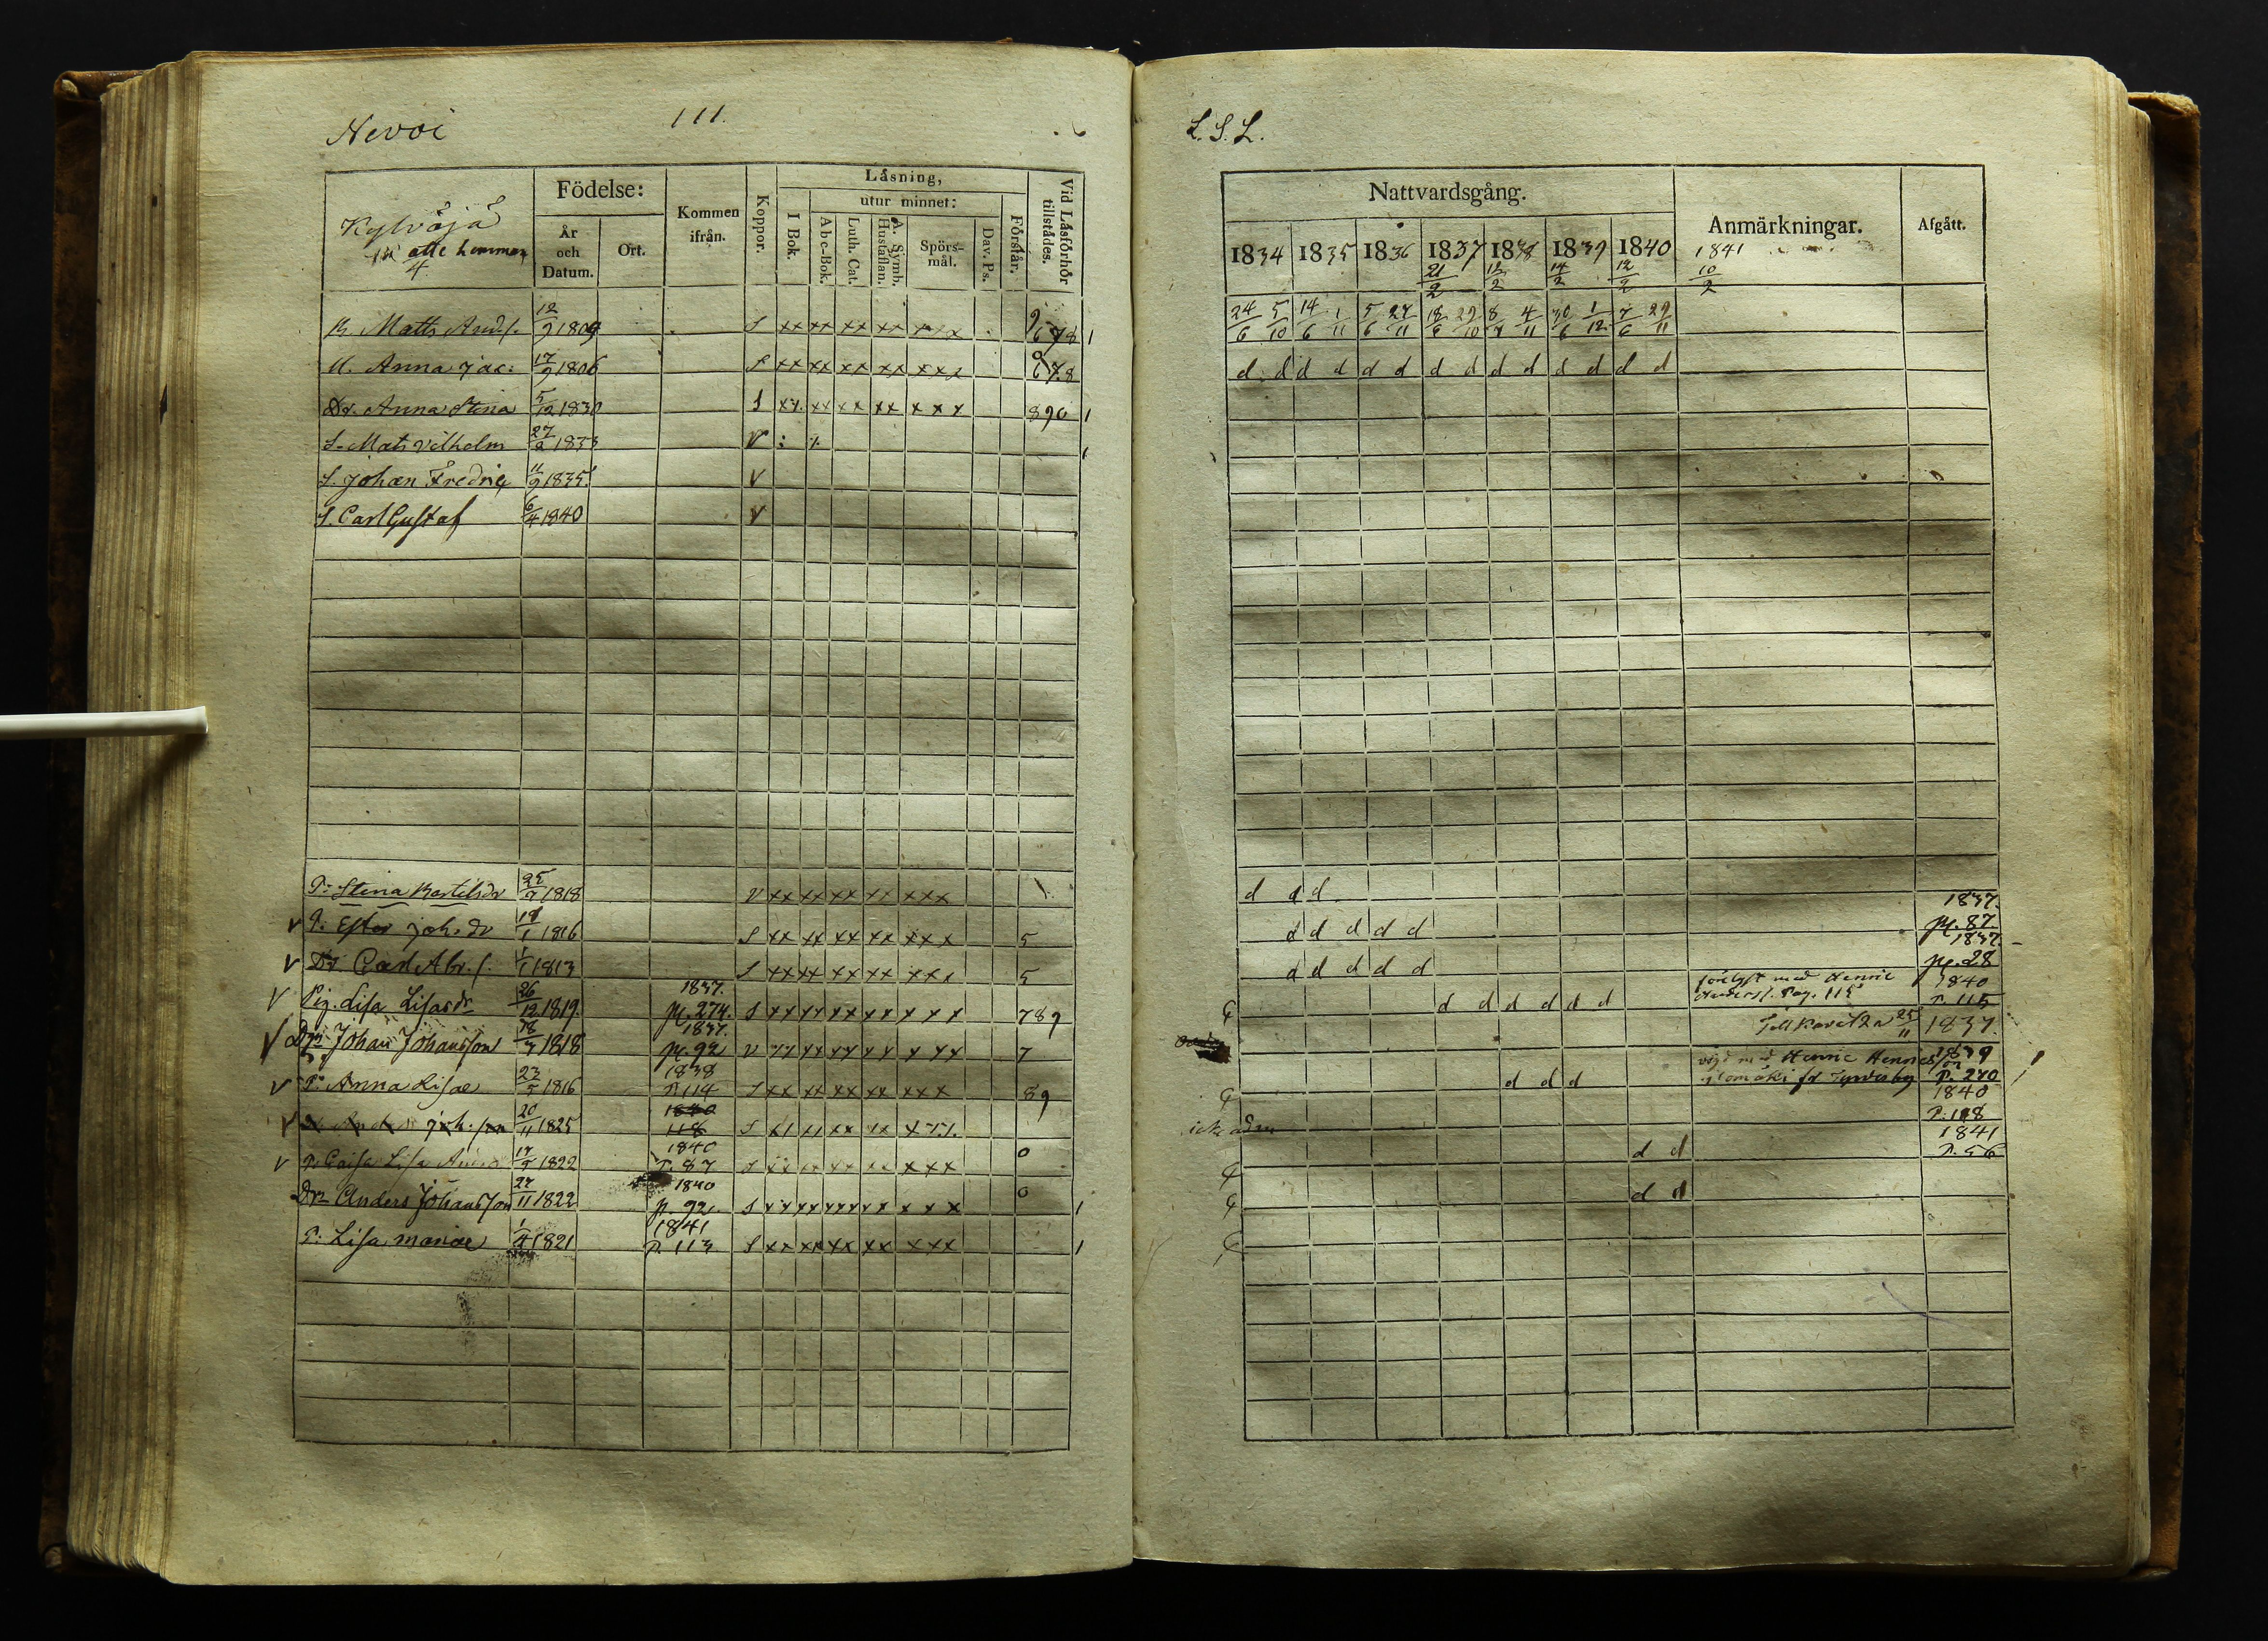 Nevoi
111.
Födelse:
Kommen ifrån.
Koppor.
Läsning,
I Bok.
utur minnet:
Abc-Bok.
Luth. Cat.
A. Symb. Hustaflan.
Spörs-mål.
Dav. Ps.
Förstår.
Vid Läsförhör tillstådes.
År och Datum.
Ort.
Kylvöjä
4
B. Matts And.s. 12/9 1809 S xx xx xx xx xxx 9 678 1
U. Anna Jac: 17/9 1806 S xx xx xx xx xxx 9 678
Dr. Anna Stina 5/12 1830 S xx xx xx xx xxx 890 1
S. Mats Vilhelm 27/2 1833 V
S. Johan Fredric 11/9 1835 V
S. Carl Gustaf 6/4 1840 V
P: Stina Bertilsdr 25/7 1818 V xx xx xx xx xxx
V P: Ester Joh. dr 18/1 1816 S xx xx xx xx xxx 5
V Dr. Carl Abr. s. 1813 S xx xx xx xx xxx 5
V Pig. Lisa Lisasdr 26/12 1819. 1837. pg. 274. S xx xx xx xx xxx 789
V Dr. Johan Johansson 18/7 1818 1837. pg. 92 V xx xx xx xx xxx 7
V P: Anna Lisae 23/5 1816 1838 P. 114 S xx xx xx xx xxx 89
V Joh. son 20/11 1825 1840 118 S
V P. Caisa Lisa 17/5 1822 1840 P. 87 S xx xx xx xx xxx 0
Dr. Anders Johansson 27/11 1822 1840 p. 92. S xx xx xx xx xxx 0 1
P: Lisa Mariae 1/4 1821 1841 P. 113 S xx xx xx xx xxx 1
L. S. L.
Nattvardsgång.
Anmärkningar.
Afgått.
1834 1835 1836 1837 1838 1839 1840 1841
21/2 12/2 14/2 12/2 10/2
24/6 5/10 14/6 1/11 5/6 27/11 18/6 29/10 8/7 4/11 30/6 1/12 7/6 29/11
d d d d d d d d d d d d d d
d d d
1837.
d d d d d pg. 87.
1837.
d d d d d pg. 28
d d d d d d med Henric Anders s. Pag. 115 1840 P. 115
Till 25/11 1837.
d d d med Henric Henricsson 1839 P. 270
icke adm 1840 P. 118
d d 1841 P. 56
d d